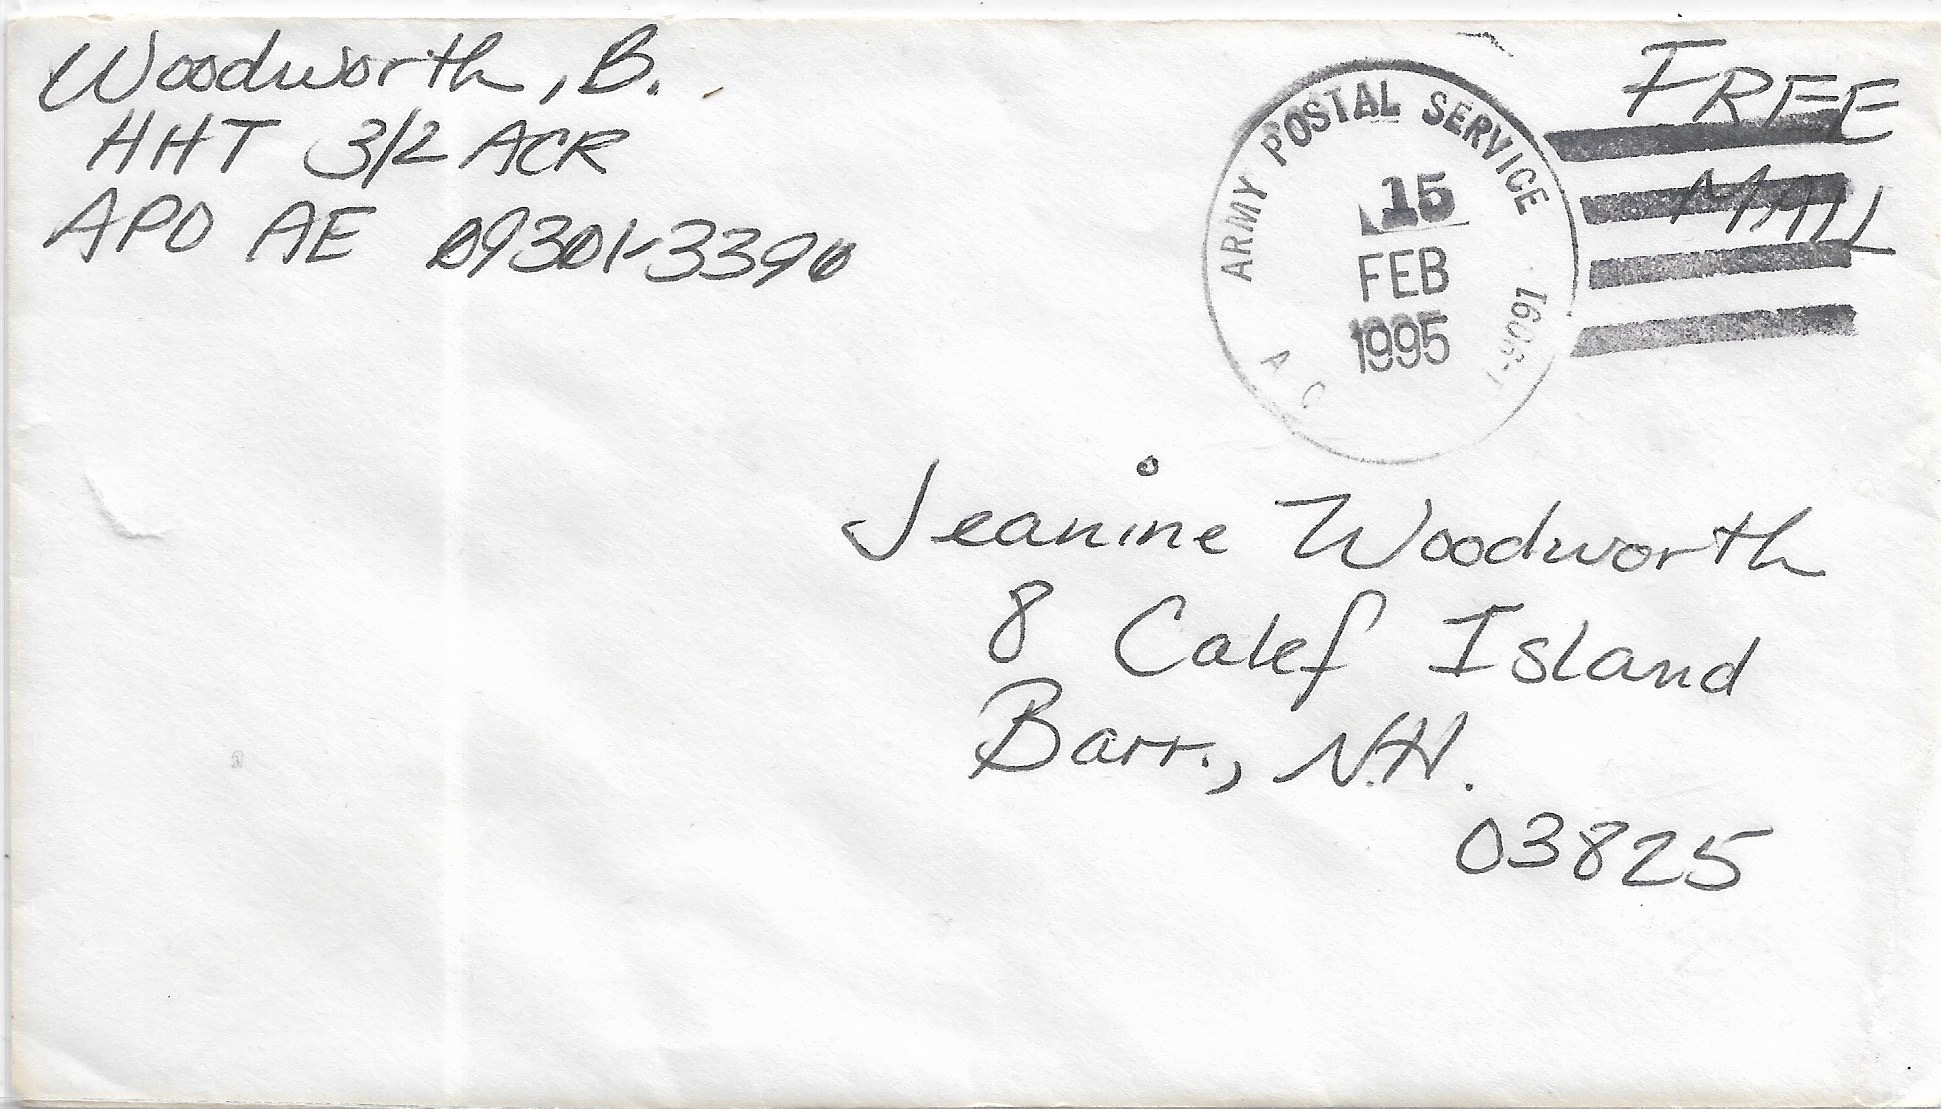 Woodworth, B.
HHT 3/2 ACR
APO AE 09301-3390
FREE
MAIL
ARMY POSTAL SERVICE
15
FEB
1995
Jeanine Woodworth
8 Calef Island
Barr., N.H.
03825